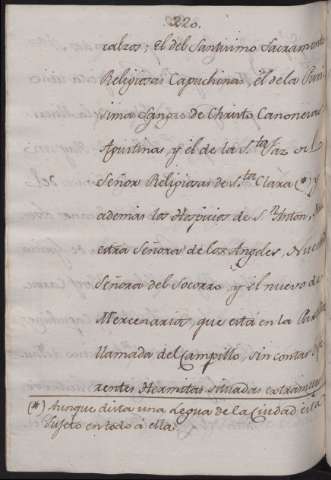 220.
calzos; El del Santisimo Sacramento
Religiosas Capuchinas, él de la
sima Sangre de Christo Canonesas
Agustinas, y él de la S.ta Faz del
Señor Religiosas de S.ta Clara (*) y
además los Hospicios de S.n Anton,
estra Señora de los Angeles,
Señora del Socorro, y el nuevo de
Mercenarios, que está en la
llamada del Campillo, sin contar
rentes Hermitas situadas extramuros
(*) Aunque dista una Legua de la Ciudad está
sujeto en todo á ella.